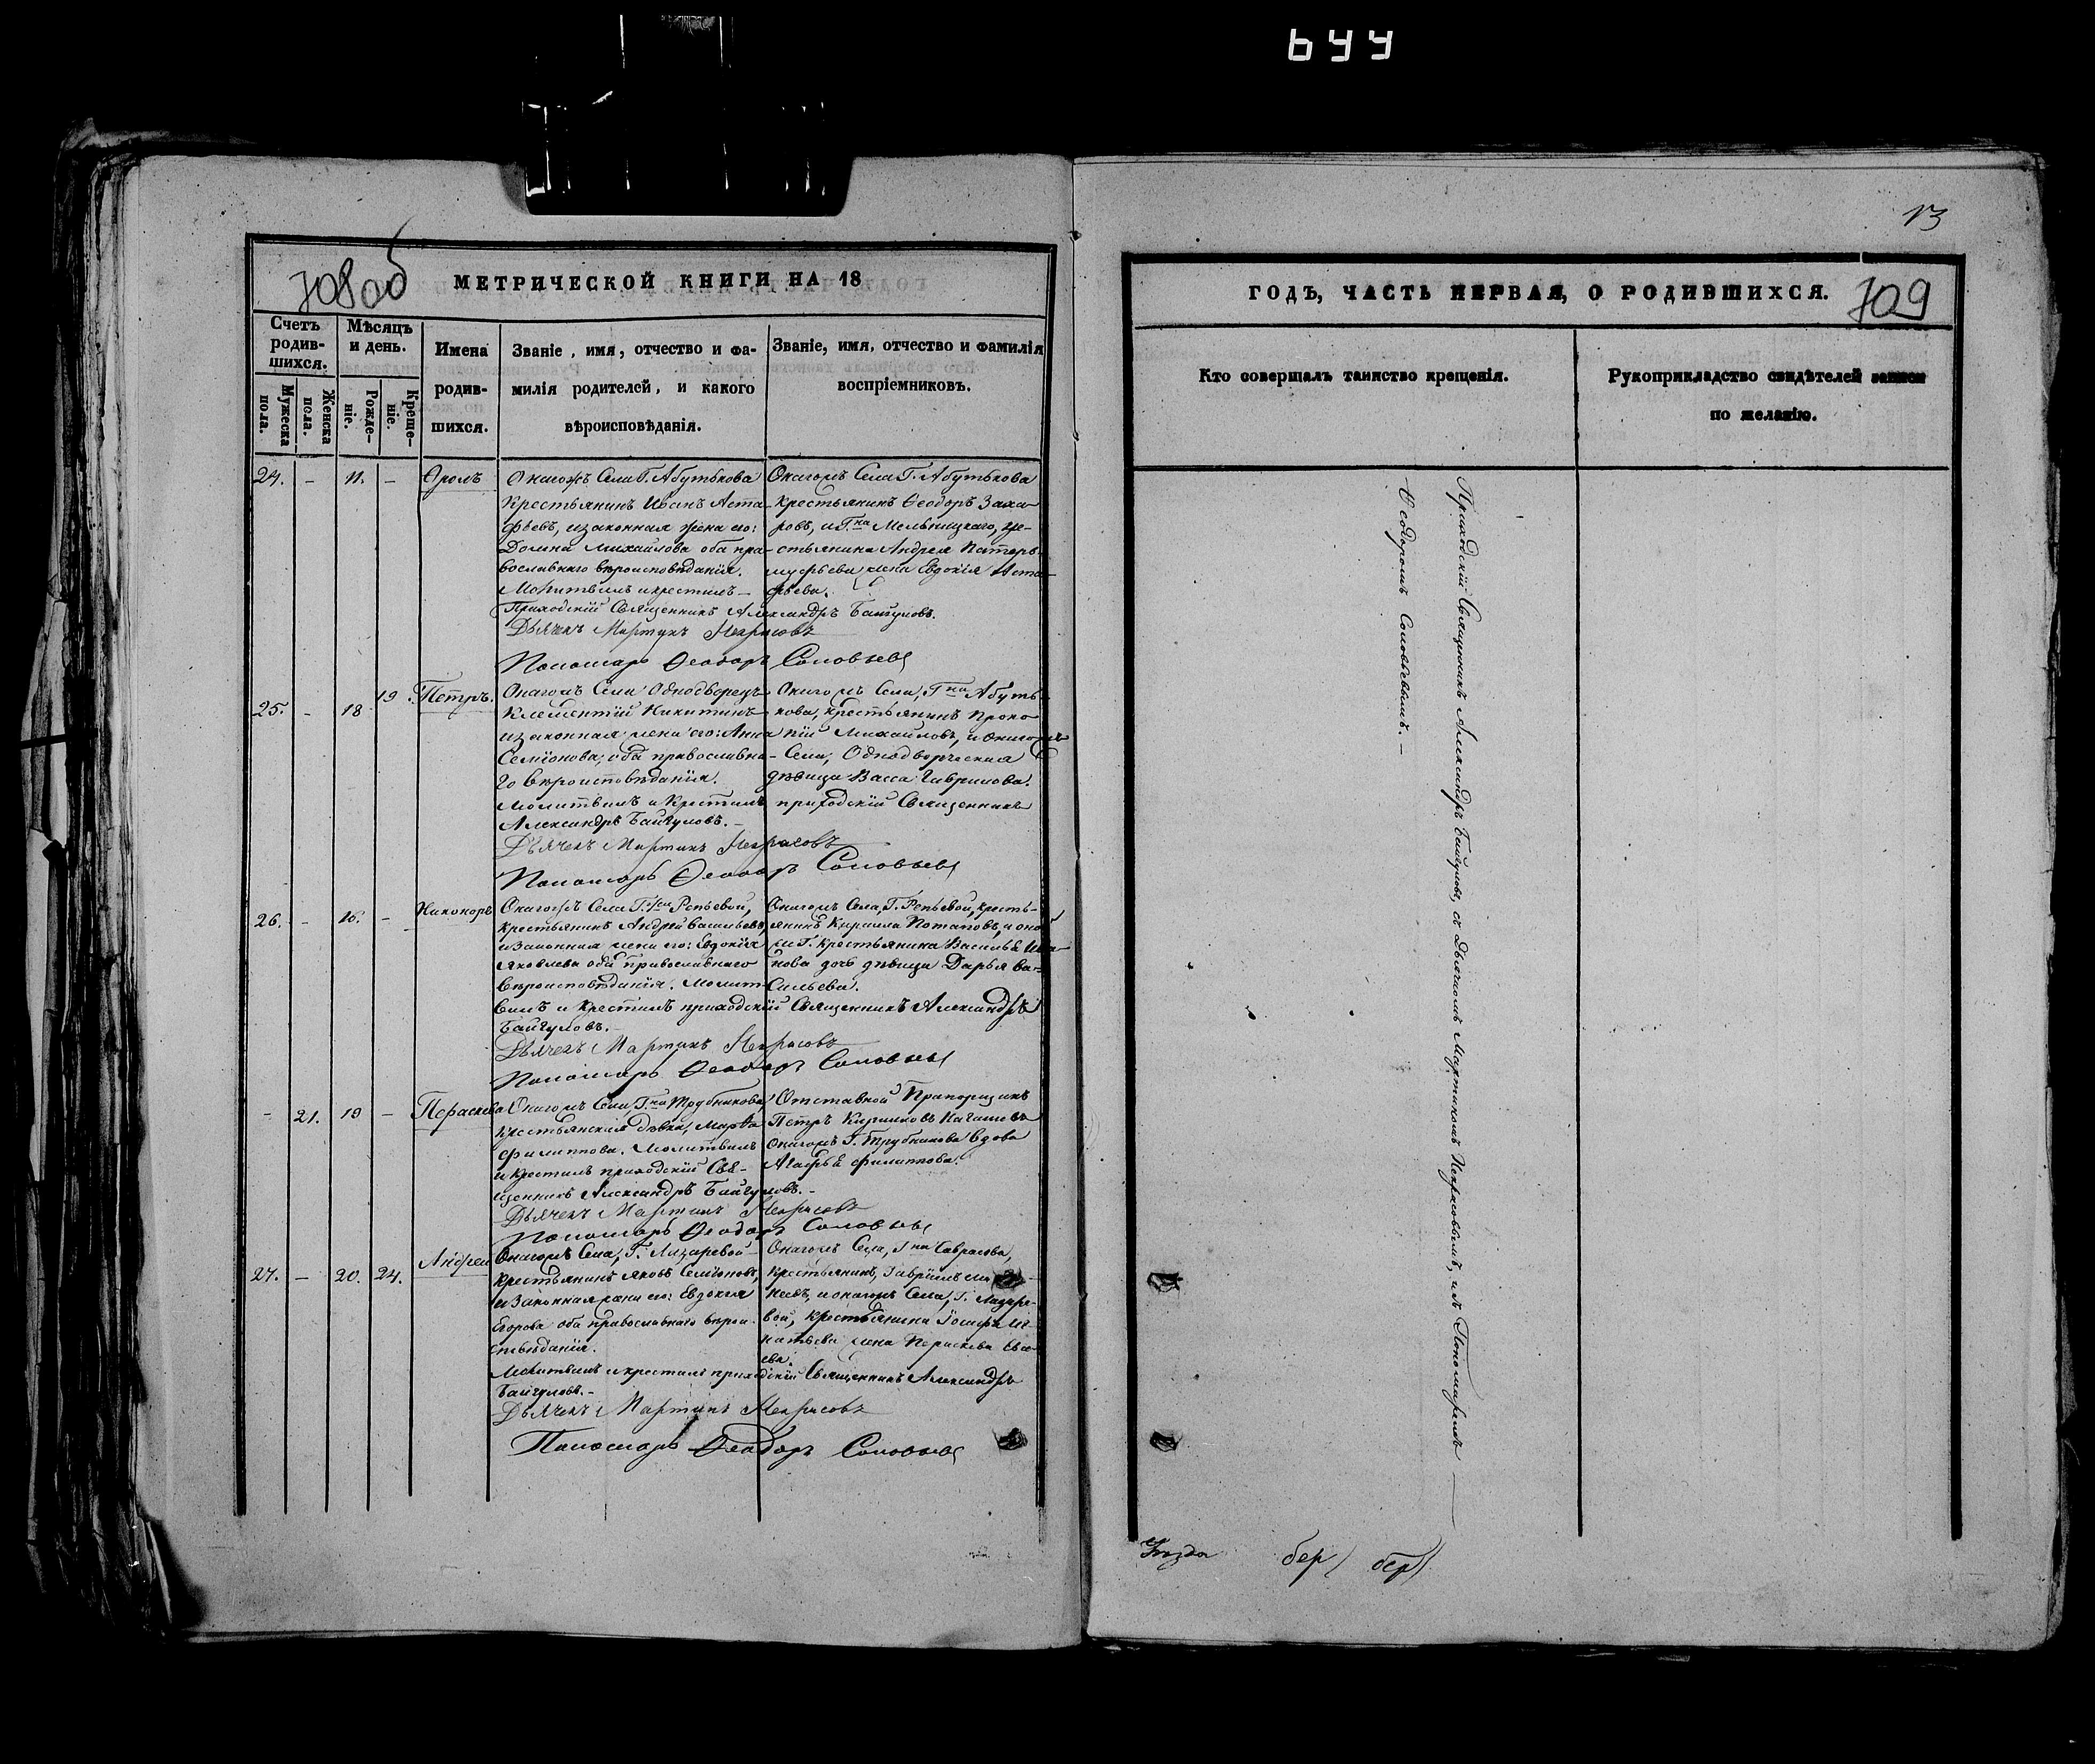 644
13
708об
МЕТРИЧЕСКОЙ КНИГИ НА 18
Счетъ родив-шихся.
Мужеска пола.
Женска пола.
Мѣсяцъ и день.
Рожде-ніе.
Креще-ніе.
Имена родив-шихся.
Званіе, имя, отчество и фа-
милія родителей, и какого
вѣроисповѣданія.
Званіе, имя, отчество и фамилія
воспріемниковъ.
24. - 11. -
Онагожъ Села Г. Абутькова
Крестьянинъ Иванъ Аста-
фьевъ, изаконная жена его:
Домна Михайлова оба пра-
вославнаго вѣроисповѣданія.
Молитвилъ икрестилъ -
Приходскій Священникъ Александръ Байгуловъ.
Дьячекъ Мартинъ Некрасовъ
Пономарь Ѳеодоръ Соловьевъ
Онагомъ Села Г. Абутькова
крестьянинъ Ѳеодоръ Заха-
ровъ, и Г.на Мельницкаго, кре-
стьянина Андрея
жена Евдокія Аста-
фьева.
25. - 18 19
Петръ.
Онагомъ Села Однодворецъ
Клементій Никитинъ
изаконная жена его: Анна
Семіонова, оба православна-
го вѣроисповѣданія.
Молитвилъ и Крестилъ приходскій Священникъ
Александръ Байгуловъ. -
Дьячекъ Мартинъ Некрасовъ
Пономарь Ѳеодоръ Соловьевъ
Онагомъ Села, Г.на Абуть-
кова, крестьянинъ Проко-
пій Михайловъ, и Онагомъ
Села, Однодворческая
дѣвица Васса Гаврилова.
26. - 16. -
Никоноръ
Онагожъ Села Г.жи Репьевой,
крестьянинъ Андрей Васильевъ,
изаконная жена его: Евдокія
Яковлева оба православнаго
вѣроисповѣданія. Молит-
вилъ и крестилъ приходскій Священникъ Александръ
Байгуловъ. -
Дьячекъ Мартинъ Некрасовъ
Пономарь Ѳеодоръ Соловьевъ
Онагомъ Села, Г. Репьевой, кресть-
янинъ Кирилла Потаповъ, и оной
Г. крестьянина Василья Ива-
нова дочь дѣвица Дарья Ва-
сильева.
- 21. 19 -
Параскева
Онагомъ Села, Г.на Трубникова,
крестьянская дѣвка, Марѳа
Филиппова. Молитвилъ
и крестилъ приходскій Свя-
щенникъ Александръ Байгуловъ. -
Дьячекъ Мартинъ Некрасовъ
Пономарь Ѳеодоръ Соловьевъ
Отставной Прапорщикъ
Петръ Кириловъ
онагомъ Г. Трубникова вдова
Агафья Филиппова.
27. - 20. 24.
Андрей
Онагомъ Села, Г. Лазаревой
крестьянинъ Яковъ Семіоновъ,
изаконная жена его: Евдокія
Егорова оба православнаго вѣрои-
сповѣданія.
Молитвилъ икрестилъ приходскій Священникъ Александръ
Байгуловъ. -
Дьячекъ Мартинъ Некрасовъ
Пономарь Ѳеодоръ Соловьевъ
Онагомъ Села, Г.на Саврасова,
крестьянинъ, Гавріилъ
и онагомъ Села, Г. Лазаре-
вой, крестьянина Іосифа Иг-
натьева жена Параскева
ева.
ГОДЪ, ЧАСТЬ ПЕРВАЯ, О РОДИВШИХСЯ.
709
Кто совершалъ таинство крещенія.
Рукоприкладство свидѣтелей записи
по желанію.
Приходскій Священникъ Александръ Байгуловъ, съ Дьячкомъ Мартиномъ Некрасовымъ, и съ Пономаремъ
Ѳеодоромъ Соловьевымъ. -